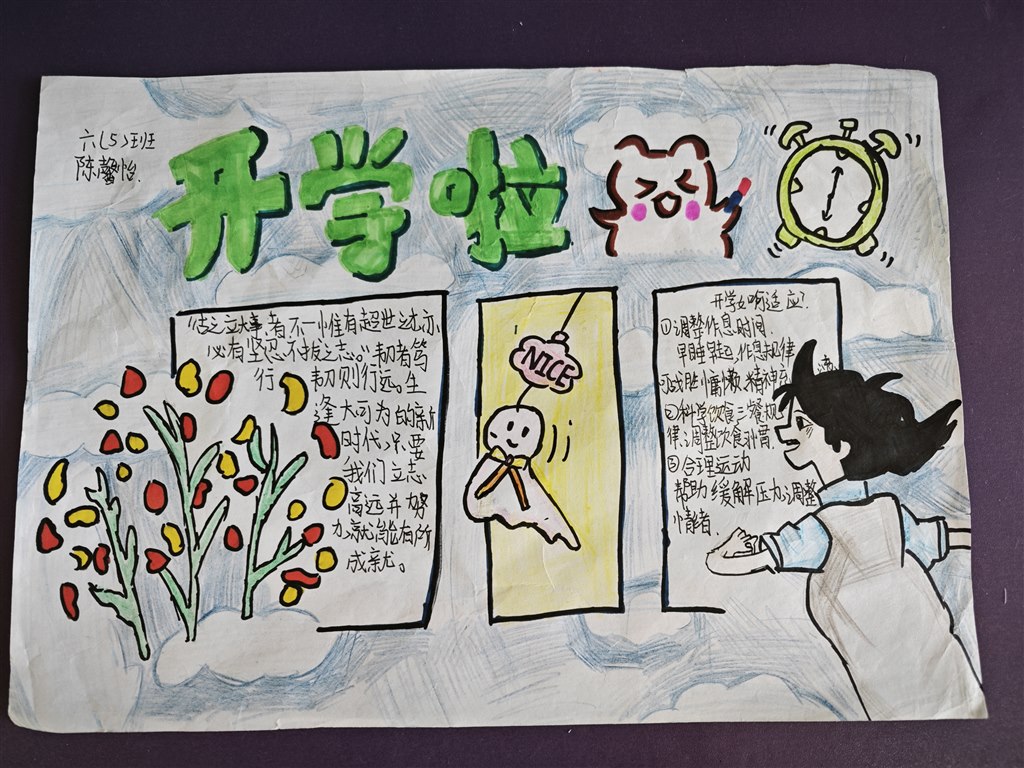 六(5)班
陈馨怡.
开学啦
"古之立大事者不惟有超世之才亦
必有坚忍不拔之志。"韧者笃
行 韧则行远。生
逢大可为的新
时代,只要
我们立志
高远并努
力就能有所
成就。
NICE
开学如何适应?
①调整作息时间.
早睡早起.作息规律
战胜慵懒.精神
②科学饮食三餐规
律,调整饮食
③合理运动
帮助缓解压力,调整
情者.